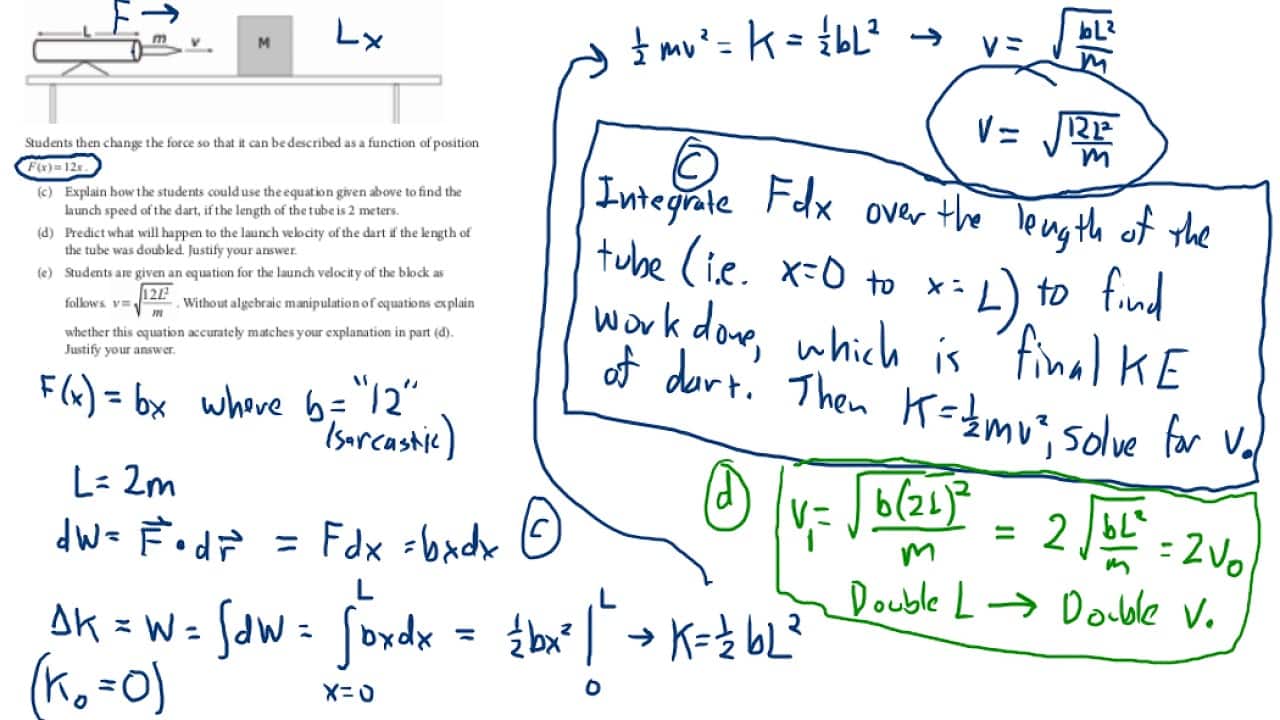 F →
L
m
v
M
Lx
Students then change the force so that it can be described as a function of position
F(x)=12x.
(c) Explain how the students could use the equation given above to find the
launch speed of the dart, if the length of the tube is 2 meters.
(d) Predict what will happen to the launch velocity of the dart if the length of
the tube was doubled. Justify your answer.
(e) Students are given an equation for the launch velocity of the block as
follows. v=√(12L²/m). Without algebraic manipulation of equations explain
whether this equation accurately matches your explanation in part (d).
Justify your answer.
F(x) = bx where b= "12"
(sarcastic)
L= 2m
dW= F⃗ • dr⃗ = Fdx =bxdx (c)
ΔK = W = ∫dW = ∫ₓ₌₀ᴸ bxdx = ½bx² |₀ᴸ → K=½bL²
(K₀=0)
½mv² = K = ½bL² → v= √(bL²/m)
v= √(12L²/m)
(c)
Integrate Fdx over the length of the
tube (i.e. x=0 to x=L) to find
work done, which is final KE
of dart. Then K=½mv², solve for v.
(d) v₁= √(b(2L)²/m) = 2√(bL²/m) = 2v₀
Double L → Double v.